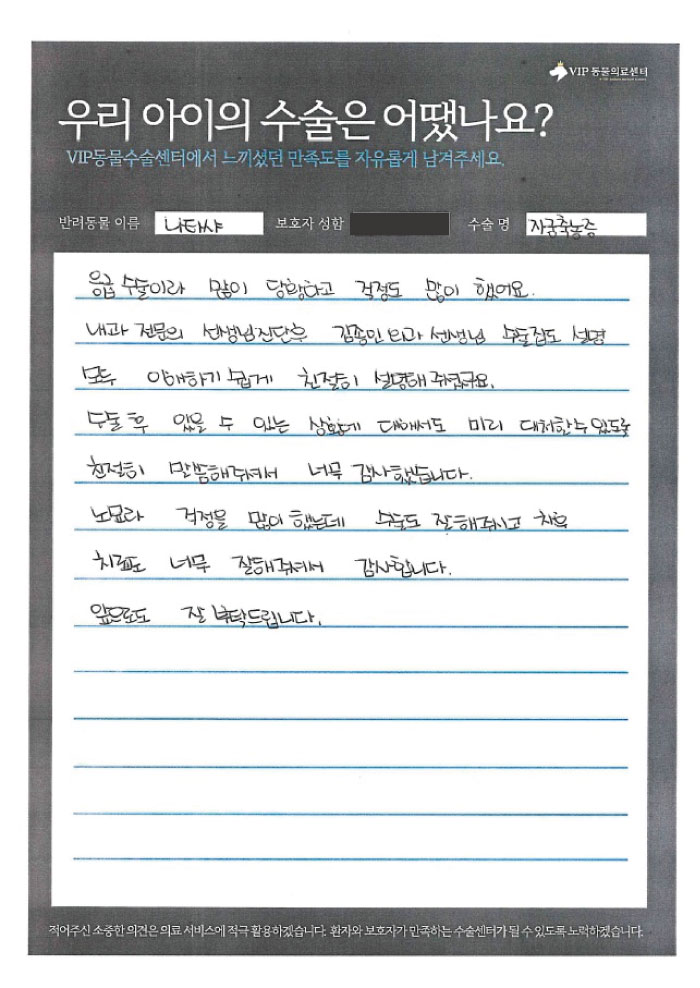 VIP 동물의료센터
우리 아이의 수술은 어땠나요?
VIP동물수술센터에서 느끼셨던 만족도를 자유롭게 남겨주세요.
반려동물 이름 나타샤 보호자 성함 수술 명 자궁축농증
응급 수술이라 많이 당황하고 걱정도 많이 했어요.
내과 전문의 선생님진단후 김종민 외과 선생님 수술집도 설명
모두 이해하기 쉽게 친절히 설명해 주셨구요.
수술 후 있을 수 있는 상황에 대해서도 미리 대처할수있도록
친절히 말씀해주셔서 너무 감사했습니다.
노묘라 걱정을 많이 했는데 수술도 잘해주시고 차후
치료도 너무 잘해주셔서 감사합니다.
앞으로도 잘 부탁드립니다.
적어주신 소중한 의견은 의료 서비스에 적극 활용하겠습니다. 환자와 보호자가 만족하는 수술센터가 될 수 있도록 노력하겠습니다.